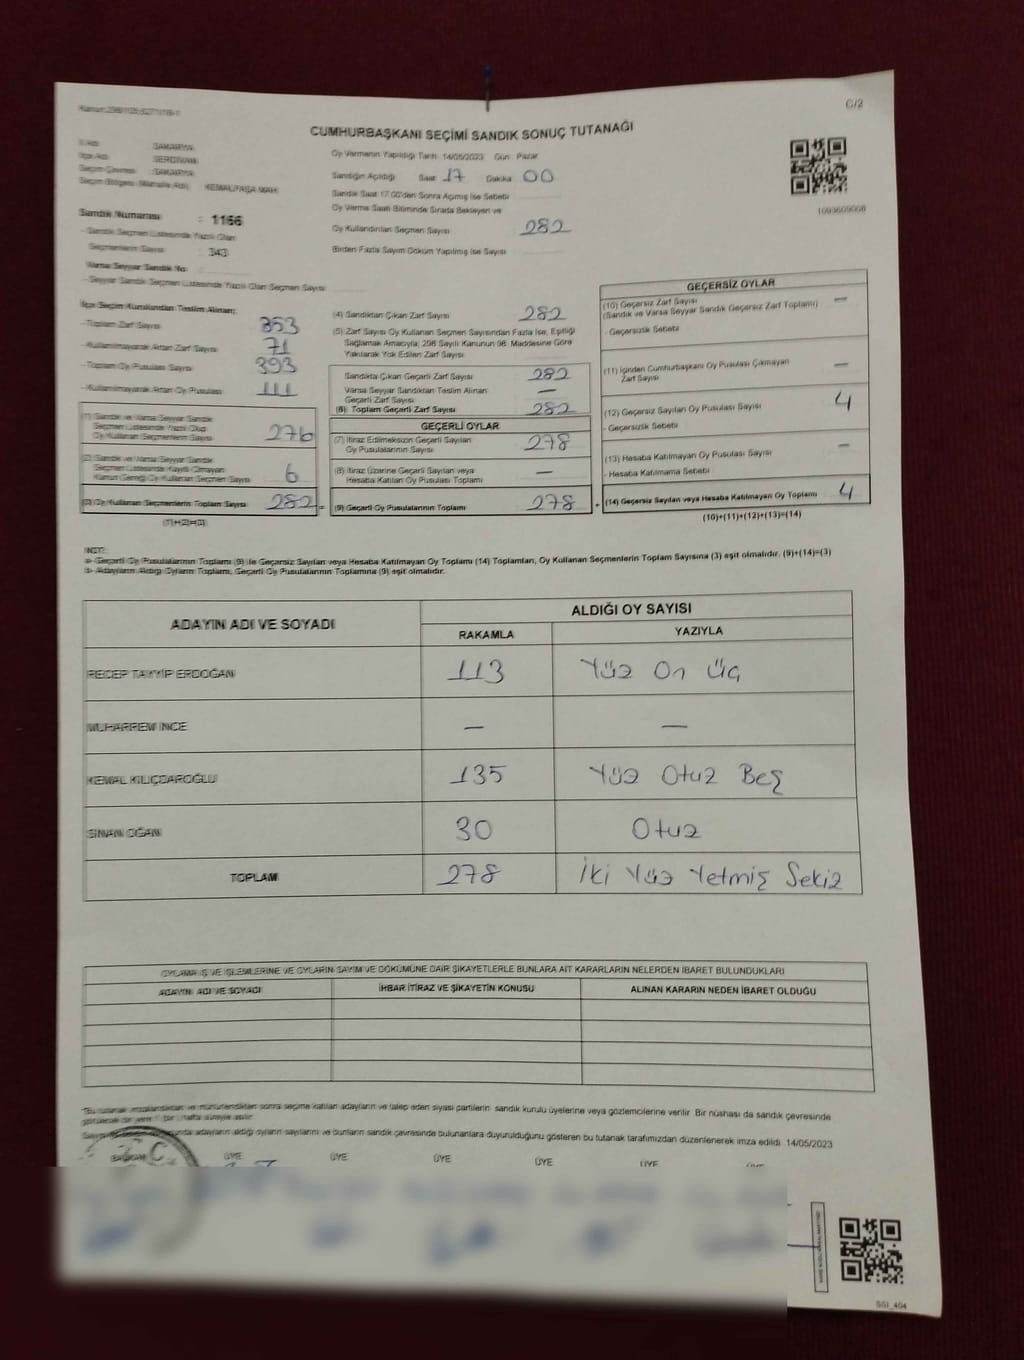 C/2
CUMHURBAŞKANI SEÇİMİ SANDIK SONUÇ TUTANAĞI
İl Adı : SAKARYA
İlçe Adı : SERDİVAN
Seçim Çevresi : SAKARYA
Seçim Bölgesi (Mahalle Adı) : KEMALPAŞA MAH.
Sandık Numarası : 1166
- Sandık Seçmen Listesinde Yazılı Olan
Seçmenlerin Sayısı : 343
Varsa Seyyar Sandık No :
- Seyyar Sandık Seçmen Listesinde Yazılı Olan Seçmen Sayısı :
Oy Vermenin Yapıldığı Tarih : 14/05/2023 Gün : Pazar
Sandığın Açıldığı Saat : 17 Dakika : 00
Sandık Saat 17.00'den Sonra Açılmış İse Sebebi :
Oy Verme Saati Bitiminde Sırada Bekleyen ve
Oy Kullandırılan Seçmen Sayısı : 282
Birden Fazla Sayım Döküm Yapılmış İse Sayısı :
İlçe Seçim Kurulundan Teslim Alınan;
- Toplam Zarf Sayısı : 353
- Kullanılmayarak Artan Zarf Sayısı : 71
- Toplam Oy Pusulası Sayısı : 393
- Kullanılmayarak Artan Oy Pusulası : 111
(1) Sandık ve Varsa Seyyar Sandık
Seçmen Listesinde Yazılı Olup
Oy Kullanan Seçmenlerin Sayısı 276
(2) Sandık ve Varsa Seyyar Sandık
Seçmen Listesinde Kayıtlı Olmayan
Kanun Gereği Oy Kullanan Seçmen Sayısı 6
(3) Oy Kullanan Seçmenlerin Toplam Sayısı 282 =
(1)+(2)=(3)
(4) Sandıktan Çıkan Zarf Sayısı : 282
(5) Zarf Sayısı Oy Kullanan Seçmen Sayısından Fazla İse, Eşitliği
Sağlamak Amacıyla; 298 Sayılı Kanunun 98. Maddesine Göre
Yakılarak Yok Edilen Zarf Sayısı :
Sandıkta Çıkan Geçerli Zarf Sayısı : 282
Varsa Seyyar Sandıktan Teslim Alınan
Geçerli Zarf Sayısı : —
(6): Toplam Geçerli Zarf Sayısı : 282
GEÇERLİ OYLAR
(7) İtiraz Edilmeksizin Geçerli Sayılan
Oy Pusulalarının Sayısı : 278
(8) İtiraz Üzerine Geçerli Sayılan veya
Hesaba Katılan Oy Pusulası Toplamı : —
(9) Geçerli Oy Pusulalarının Toplamı : 278 +
GEÇERSİZ OYLAR
(10) Geçersiz Zarf Sayısı : —
(Sandık ve Varsa Seyyar Sandık Geçersiz Zarf Toplamı)
- Geçersizlik Sebebi :
(11) İçinden Cumhurbaşkanı Oy Pusulası Çıkmayan
Zarf Sayısı : —
(12) Geçersiz Sayılan Oy Pusulası Sayısı : 4
- Geçersizlik Sebebi :
(13) Hesaba Katılmayan Oy Pusulası Sayısı : —
- Hesaba Katılmama Sebebi :
(14) Geçersiz Sayılan veya Hesaba Katılmayan Oy Toplamı : 4
(10)+(11)+(12)+(13)=(14)
NOT:
a- Geçerli Oy Pusulalarının Toplamı (9) ile Geçersiz Sayılan veya Hesaba Katılmayan Oy Toplamı (14) Toplamları, Oy Kullanan Seçmenlerin Toplam Sayısına (3) eşit olmalıdır. (9)+(14)=(3)
b- Adayların Aldığı Oyların Toplamı, Geçerli Oy Pusulalarının Toplamına (9) eşit olmalıdır.
ADAYIN ADI VE SOYADI
ALDIĞI OY SAYISI
RAKAMLA YAZIYLA
RECEP TAYYİP ERDOĞAN 113 Yüz On Üç
MUHARREM İNCE — —
KEMAL KILIÇDAROĞLU 135 Yüz Otuz Beş
SİNAN OĞAN 30 Otuz
TOPLAM 278 İki Yüz Yetmiş Sekiz
OYLAMA İŞ VE İŞLEMLERİNE VE OYLARIN SAYIM VE DÖKÜMÜNE DAİR ŞİKAYETLERLE BUNLARA AİT KARARLARIN NELERDEN İBARET BULUNDUKLARI
ADAYIN ADI VE SOYADI İHBAR İTİRAZ VE ŞİKAYETİN KONUSU ALINAN KARARIN NEDEN İBARET OLDUĞU
*Bu tutanak imzalandıktan ve mühürlendikten sonra seçime katılan adayların ve talep eden siyasi partilerin sandık kurulu üyelerine veya gözlemcilerine verilir. Bir nüshası da sandık çevresinde
adayların aldığı oyların sayılarını ve bunların sandık çevresinde bulunanlara duyurulduğunu gösteren bu tutanak tarafımızdan düzenlenerek imza edildi. 14/05/2023
BAŞKAN ÜYE ÜYE ÜYE ÜYE ÜYE
SSI_404